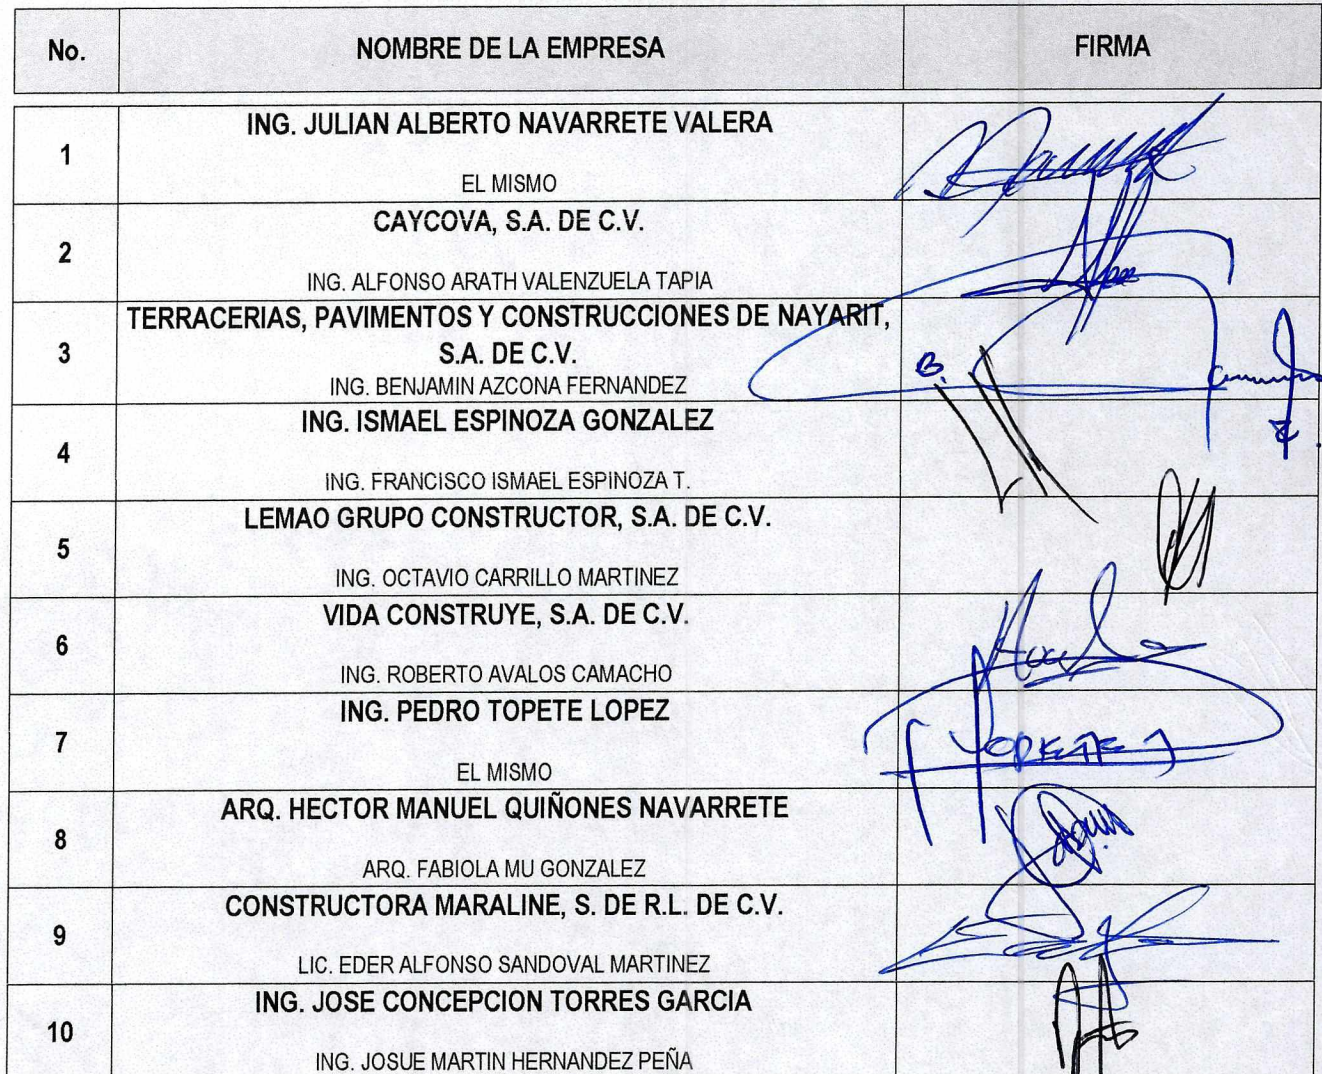 No. NOMBRE DE LA EMPRESA FIRMA
1 ING. JULIAN ALBERTO NAVARRETE VALERA
EL MISMO
2 CAYCOVA, S.A. DE C.V.
ING. ALFONSO ARATH VALENZUELA TAPIA
3 TERRACERIAS, PAVIMENTOS Y CONSTRUCCIONES DE NAYARIT,
S.A. DE C.V.
ING. BENJAMIN AZCONA FERNANDEZ
4 ING. ISMAEL ESPINOZA GONZALEZ
ING. FRANCISCO ISMAEL ESPINOZA T.
5 LEMAO GRUPO CONSTRUCTOR, S.A. DE C.V.
ING. OCTAVIO CARRILLO MARTINEZ
6 VIDA CONSTRUYE, S.A. DE C.V.
ING. ROBERTO AVALOS CAMACHO
7 ING. PEDRO TOPETE LOPEZ
EL MISMO
8 ARQ. HECTOR MANUEL QUIÑONES NAVARRETE
ARQ. FABIOLA MU GONZALEZ
9 CONSTRUCTORA MARALINE, S. DE R.L. DE C.V.
LIC. EDER ALFONSO SANDOVAL MARTINEZ
10 ING. JOSE CONCEPCION TORRES GARCIA
ING. JOSUE MARTIN HERNANDEZ PEÑA